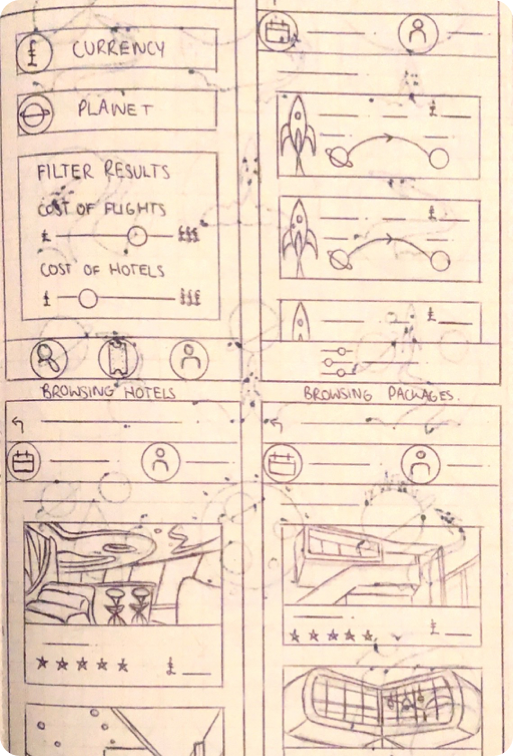 £ CURRENCY
PLANET
FILTER RESULTS
COST OF FLIGHTS
£ £££
COST OF HOTELS
£ £££
£
£
£
BROWSING HOTELS
£
BROWSING PACKAGES.
£